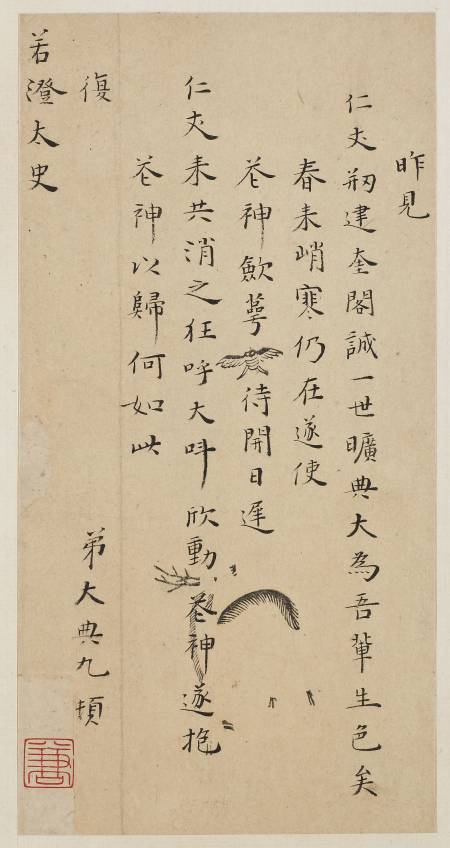 昨見
仁丈剏建奎閣誠一世曠典大為吾輩生色矣
春来峭寒仍在遂使
花神歛萼待開日遲
仁丈来共消之狂呼大呌欣動花神遂抱
花神以歸何如此
復
弟大典九頓
若澄太史